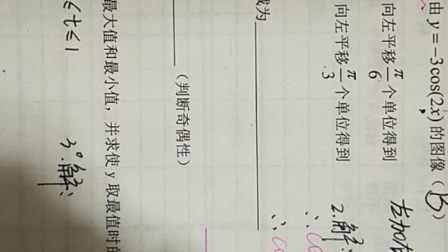 由 y = -3cos(2x) 的图像 (b)
向左平移 π/6 个单位得到
左加
向左平移 π/3 个单位得到
2.解:
成为
∴
(判断奇偶性)
最大值和最小值，并求使 y 取最值时的
≤ t ≤ 1
3°.解: